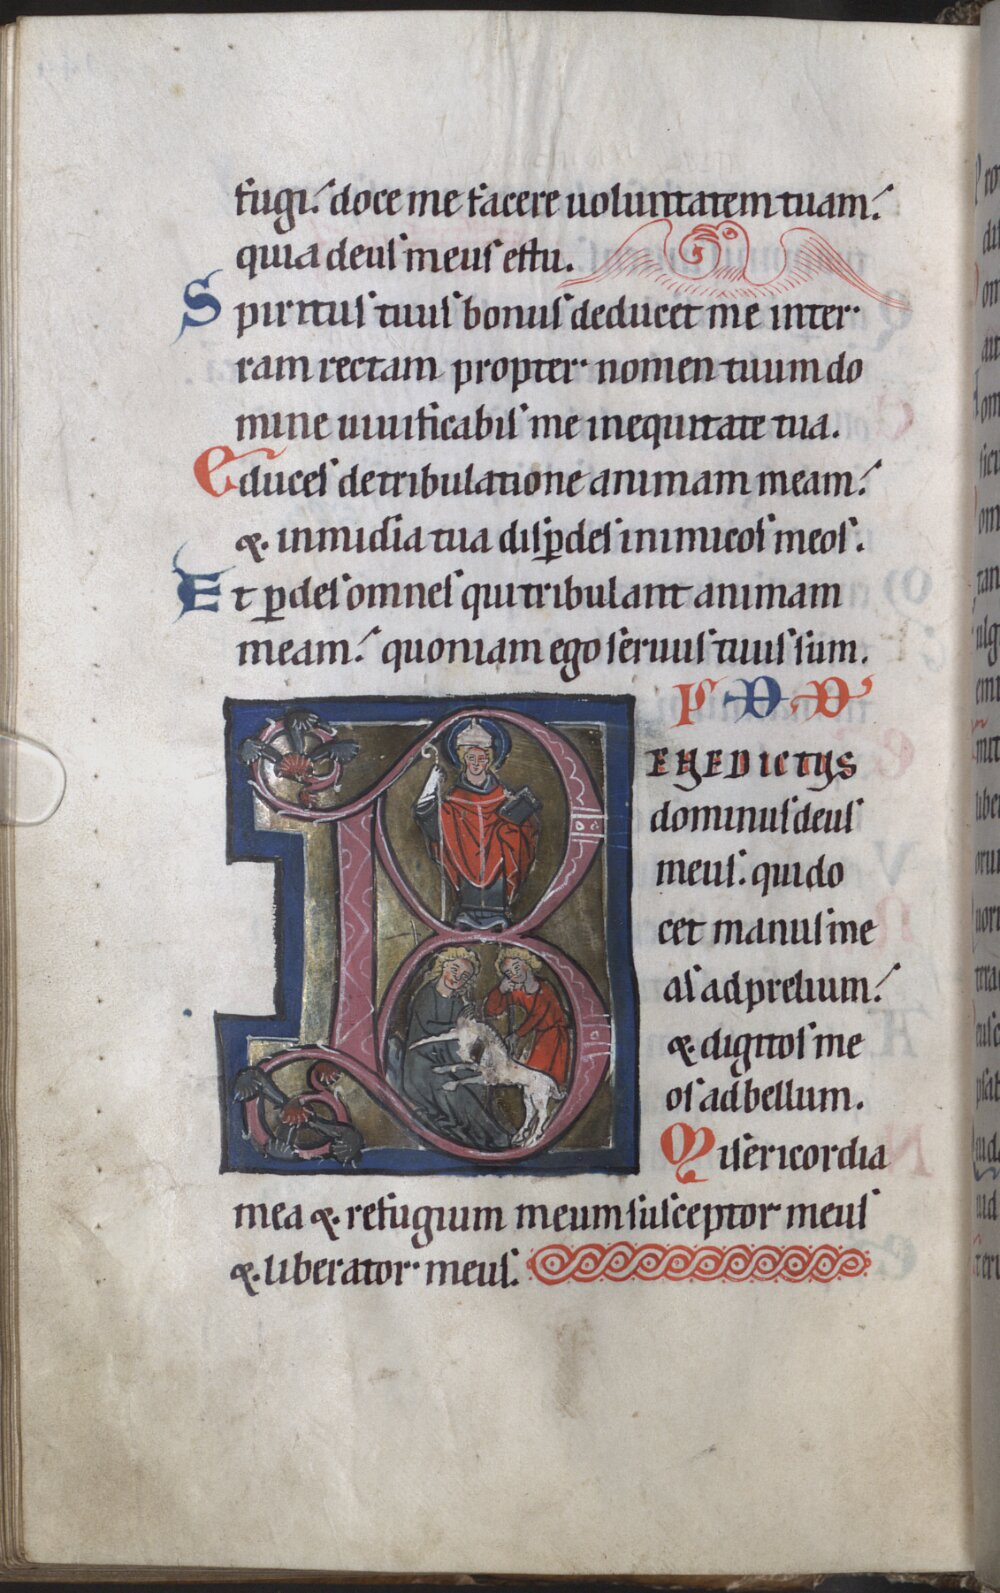 fugi. doce me facere uoluntatem tuam.
quia deus meus es tu.
Spiritus tuus bonus deducet me inter
ram rectam propter nomen tuum do
mine uiuificabis me in equitate tua.
Educes de tribulatione animam meam.
& in mi&#x0131;dia tua disꝑdes inimicos meos.
Et ꝑdes omnes qui tribulant animam
meam. quoniam ego seruus tuus sum.
BENEDICTUS
dominus deus
meus. qui do
cet manus me
as ad prelium.
& digitos me
os ad bellum.
Misericordia
mea & refugium meum susceptor meus
& liberator meus.